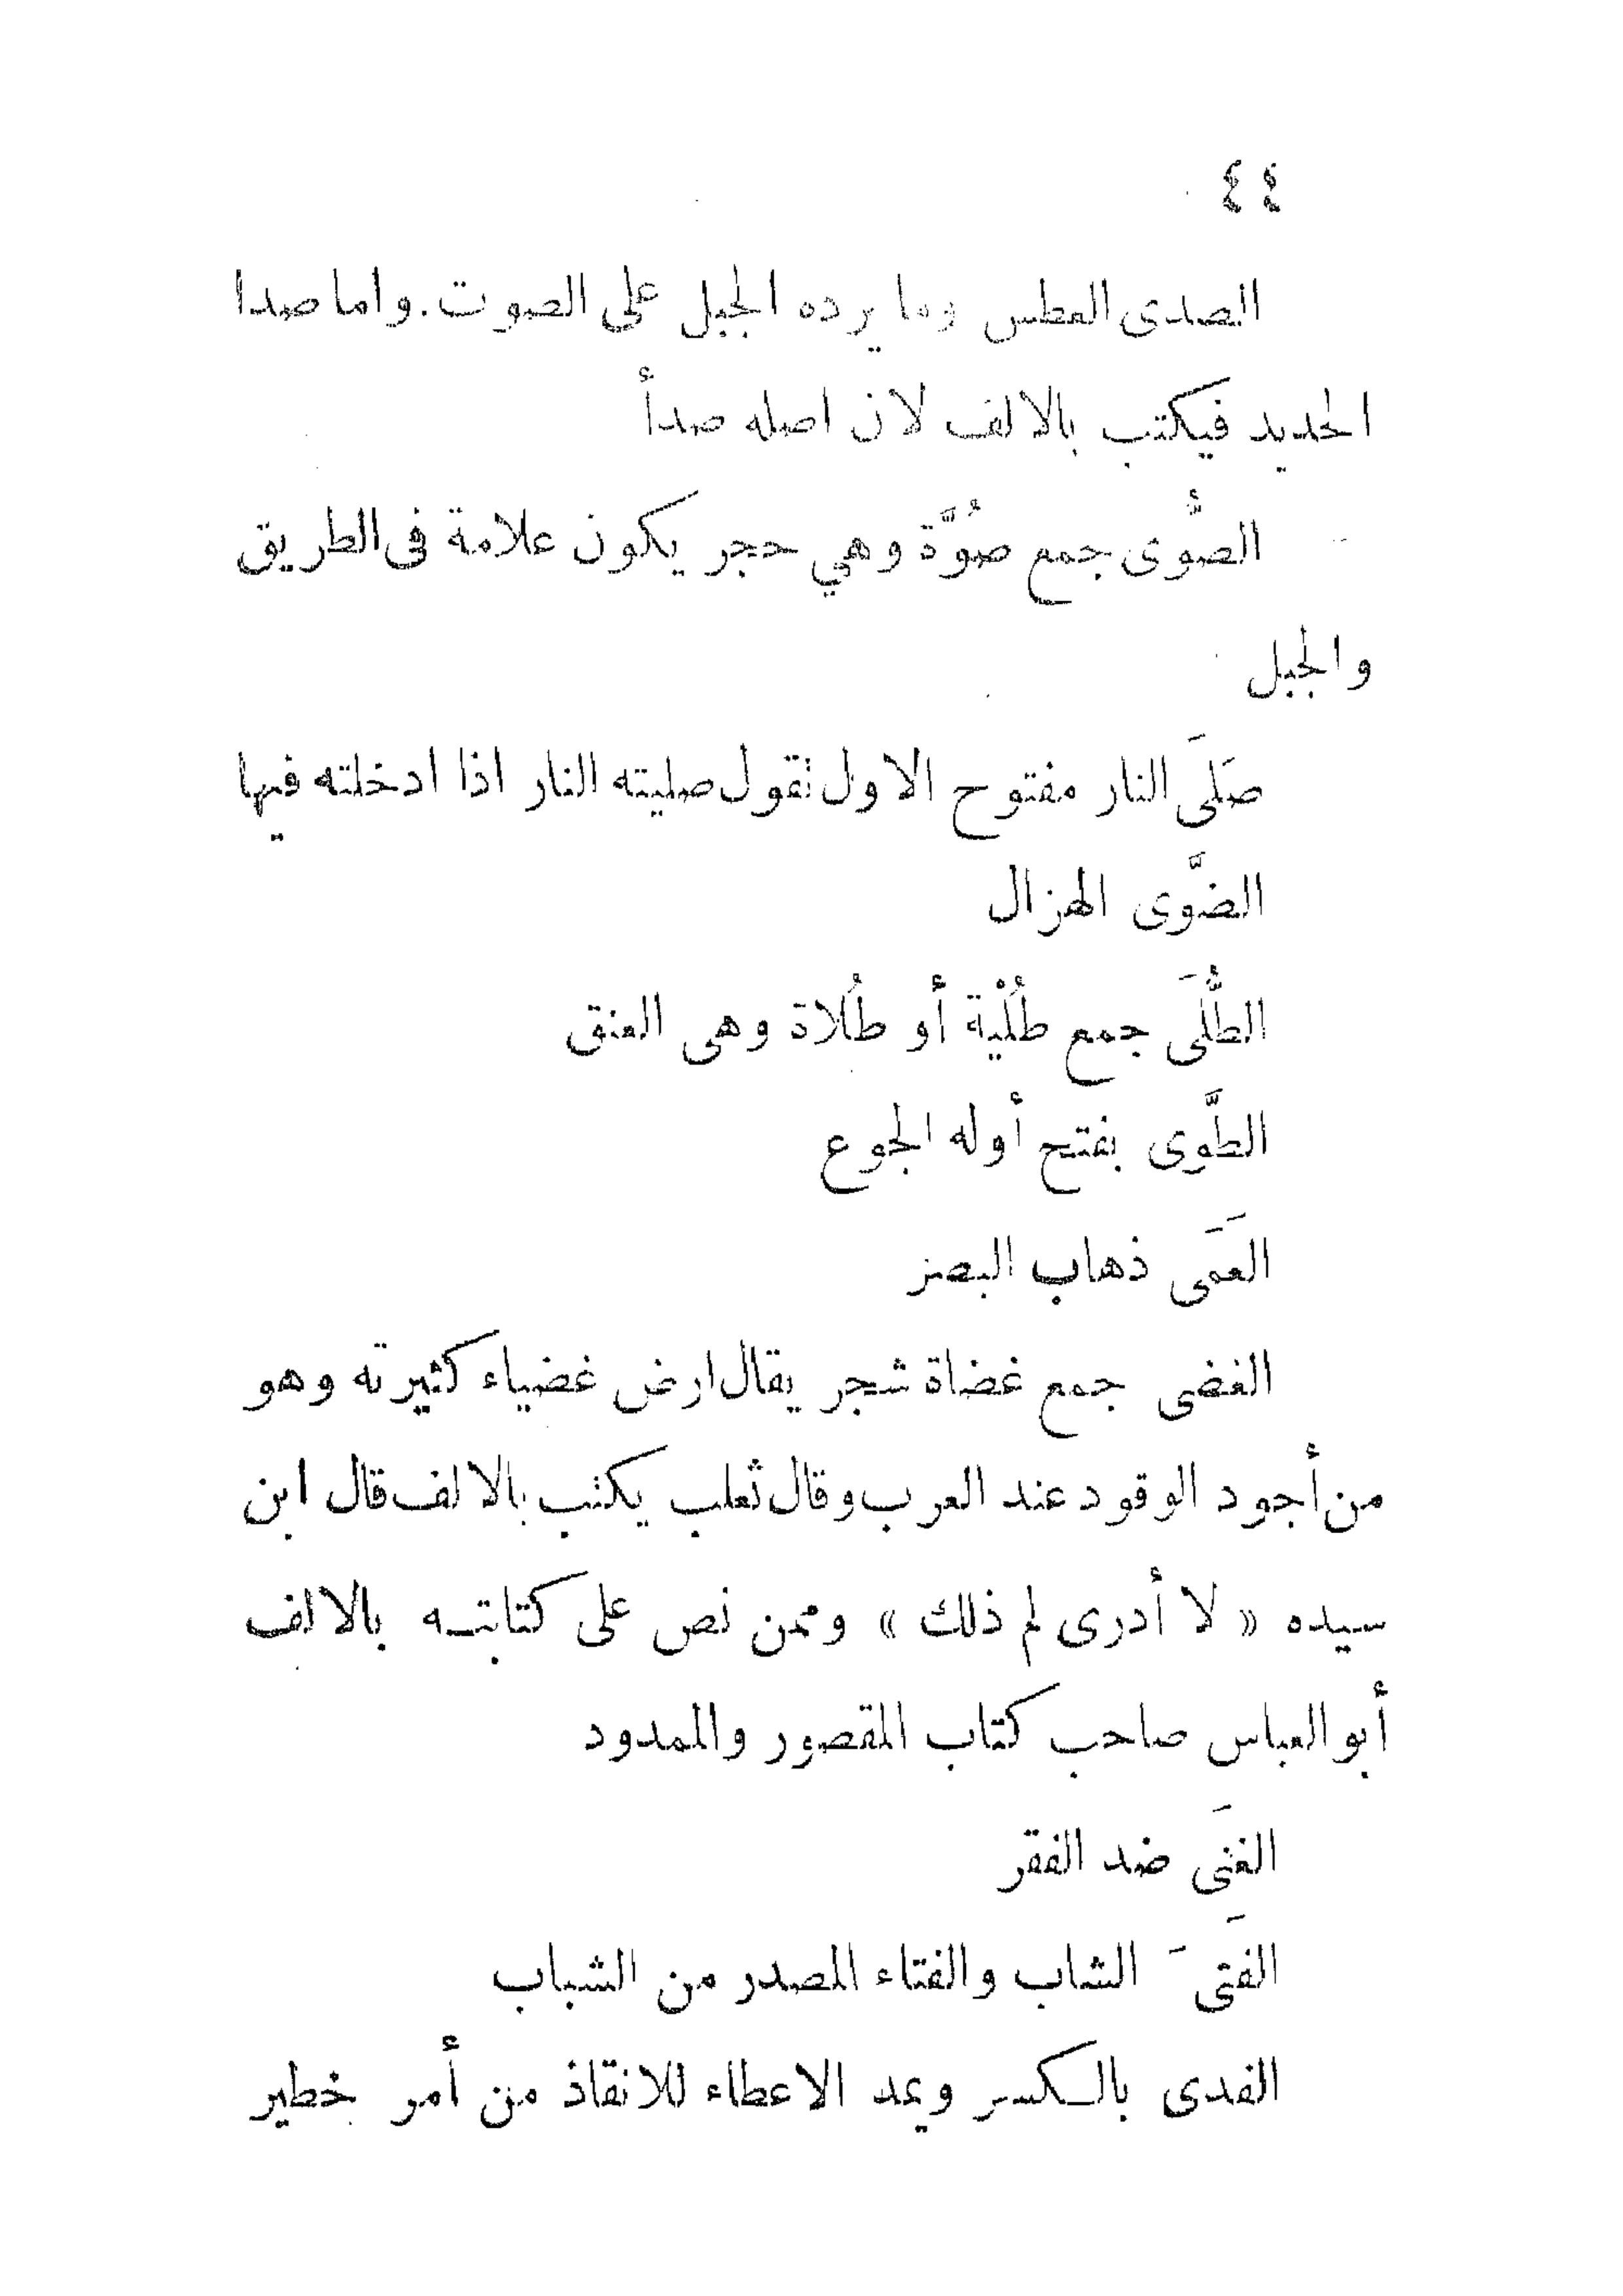 ٤٤
الصدى العطس وما يرده الجبل على الصوت. واما صدا
الحديد فيكتب بالالف لان اصله صدأ
الصُّوى جمع صُوَّة وهي حجر يكون علامة فى الطريق
والجبل
صَلَى النار مفتوح الاول تقول صليته النار اذا ادخلته فيها
الضَّوى الهزال
الطُّلَى جمع طُلْيَة أو طُلاة وهى العنق
الطَّوى بفتح أوله الجوع
العَمَى ذهاب البصر
الغضى جمع غضاة شجر يقال ارض غضياء كثيرته وهو
من أجود الوقود عند العرب وقال ثعلب يكتب بالالف قال ابن
سيده « لا أدرى لم ذلك » وممن نص على كتابته بالالف
أبو العباس صاحب كتاب المقصور والممدود
الغنَى ضد الفقر
الفَتَى الشاب والفتاء المصدر من الشباب
الفدى بالكسر ويمد الاعطاء للانقاذ من أمر خطير